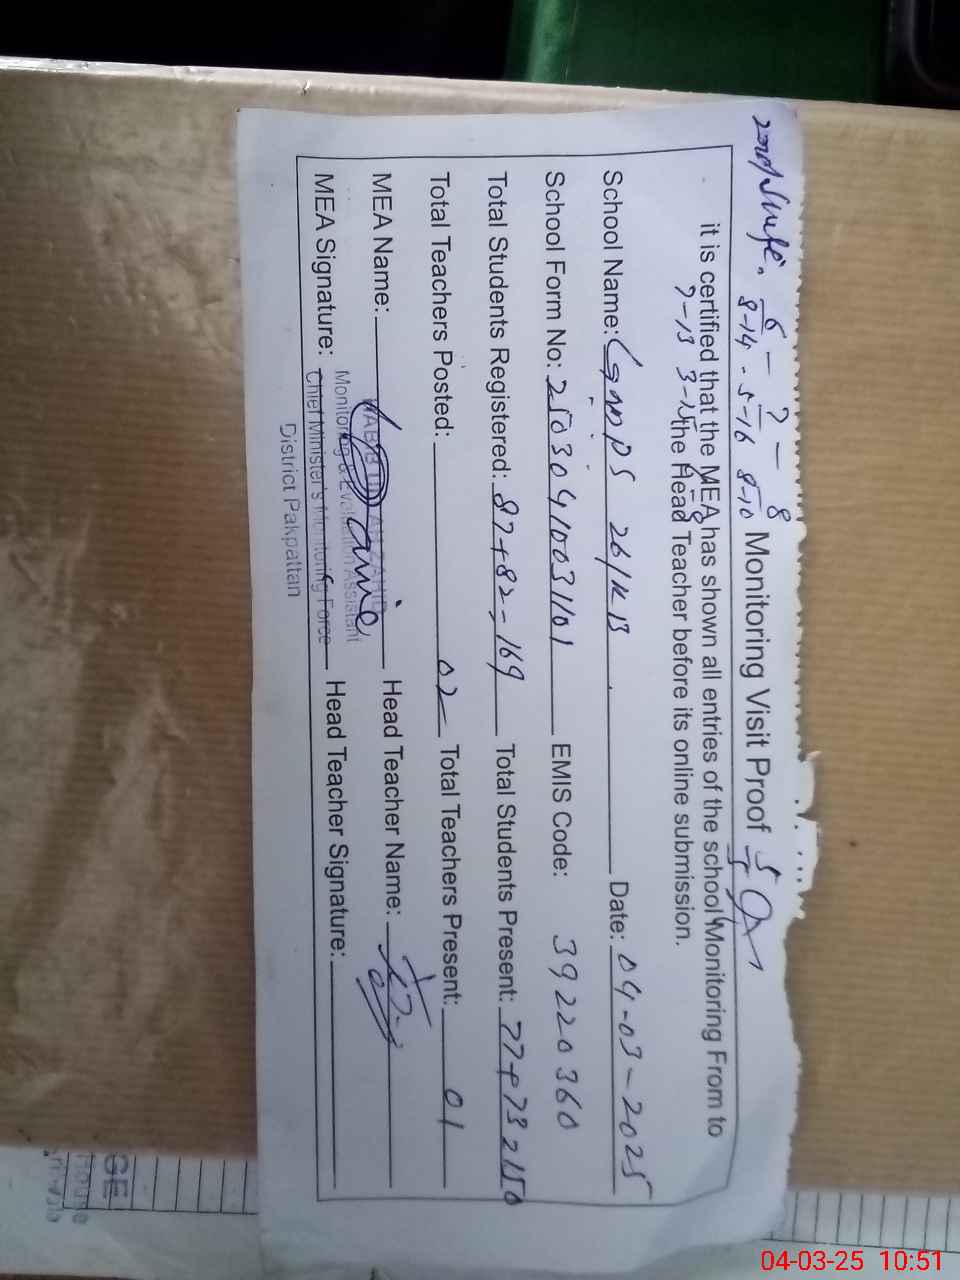 6 - 7 - 8 Monitoring Visit Proof 5
8-14 - 5-16 8-10
it is certified that the MEA has shown all entries of the school Monitoring From to
7-13 3-15 the Head Teacher before its online submission.
School Name: GMPS 26/KB Date: 04-03-2025
School Form No: 25030410031101 EMIS Code: 39220360
Total Students Registered: 87+82=169 Total Students Present: 77+73=150
Total Teachers Posted: 02 Total Teachers Present: 01
MEA Name: Head Teacher Name:
MEA Signature: Head Teacher Signature:
Monitoring & Evaluation Assistant
Chief Minister's Monitoring Force
District Pakpattan
04-03-25 10:51